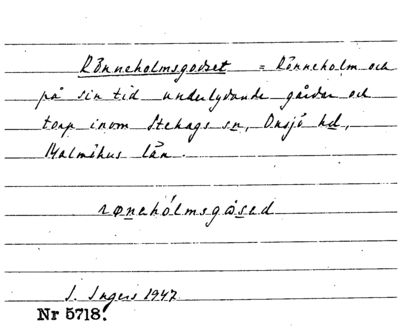 Rönneholmsgodset = Rönneholm och
på sin tid underlydande gårdar och
torp inom Stehags sn, Onsjö hd,
Malmöhus län.
rønehólmsgåsed
I. Ingers 1947
Nr 5718.